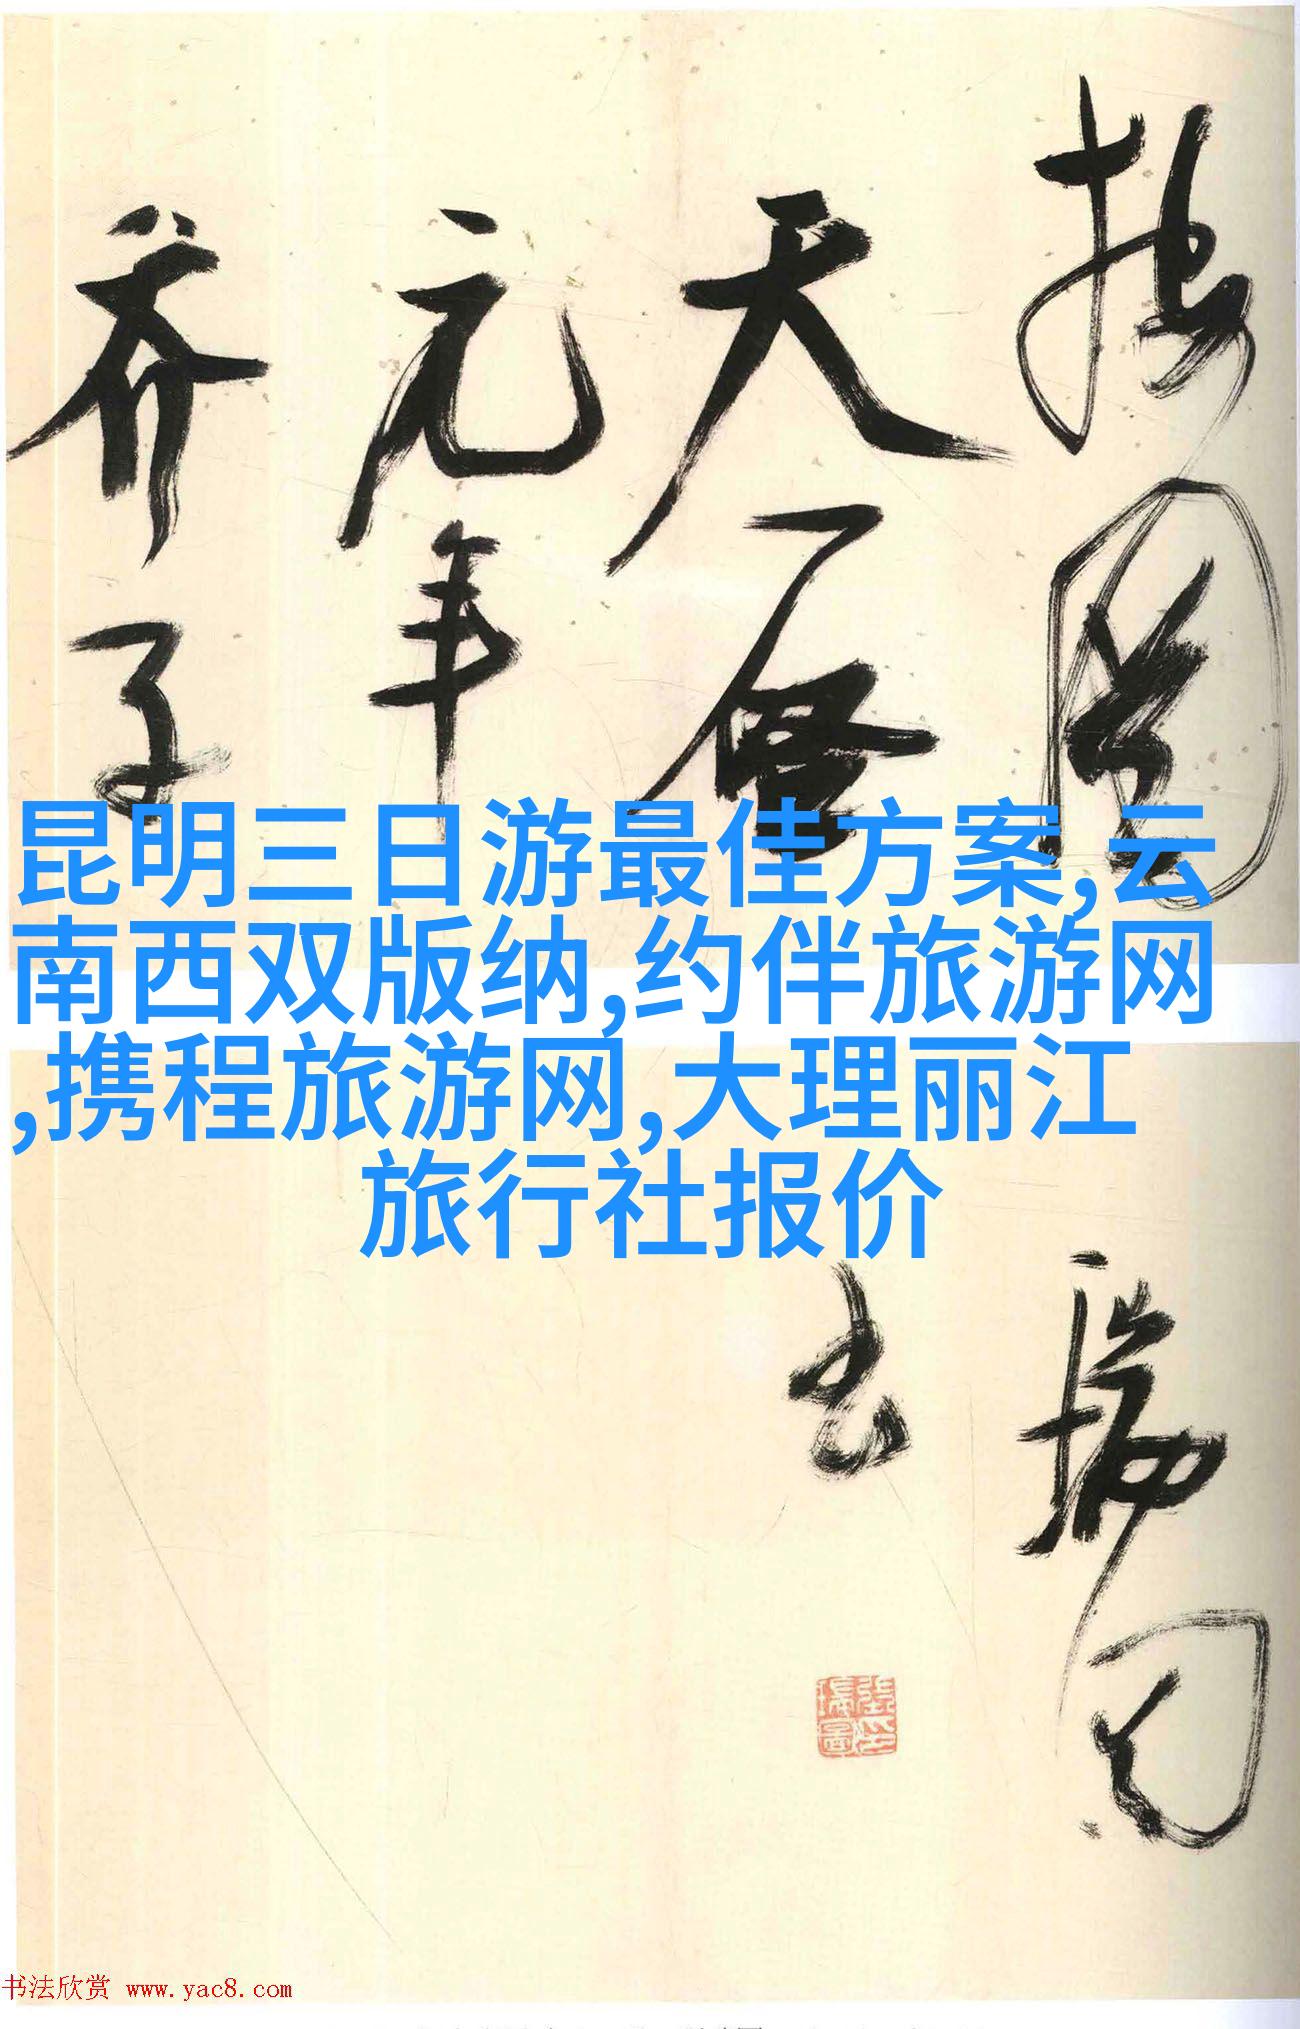 天啓
元年
昆明三日游最佳方案,云
南西双版纳,约伴旅游网
,携程旅游网,大理丽江
旅行社报价
瑞圖
書
張瑞圖印
书法欣赏 www.yac8.com